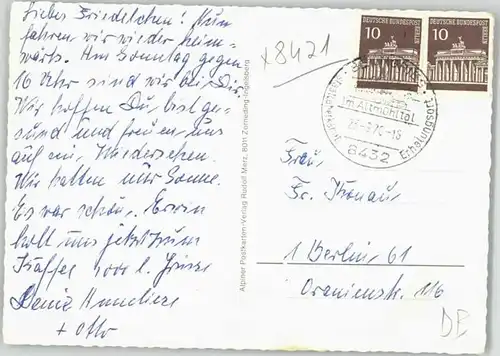 Liebes Friedelchen! Nun
fahren wir wieder heim-
wärts. Am Sonntag gegen
16 Uhr sind wir bei Dir.
Wir hoffen Du bist ge-
sund und freuen uns
auf ein Wiedersehen.
Wir hatten nur Sonne.
Es war schön. Erwin
holt uns jetzt zum
Kaffee
Deine Anneliese
+ Otto
Alpiner Postkarten-Verlag Rudolf Merz, 8011 Zorneding-Ingelsberg
x8421
10
DEUTSCHE BUNDESPOST
BERLIN
10
DEUTSCHE BUNDESPOST
BERLIN
im Altmühltal
8432
Erholungsort
Frau
Fr. Kronau
1 Berlin 61
Oranienstr. 116
DE